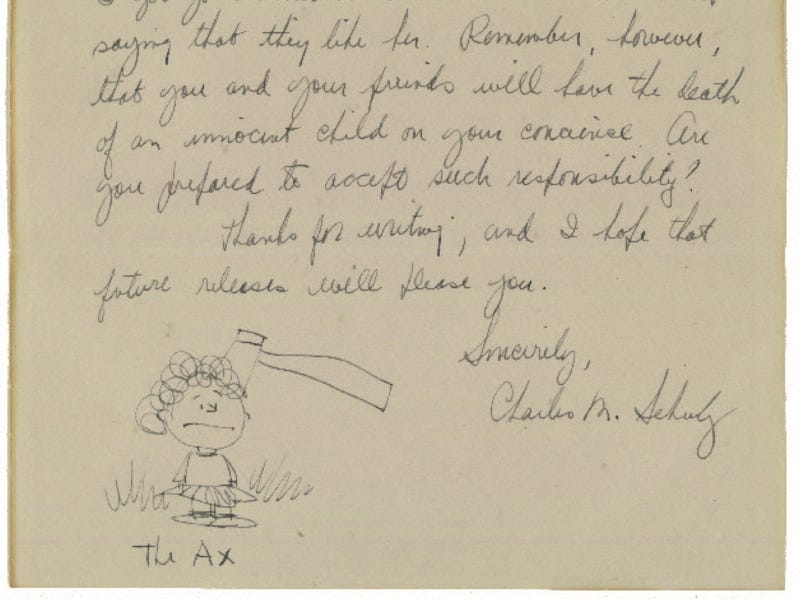 saying that they like her. Remember, however,
that you and your friends will have the death
of an innocent child on your concience. Are
you prepared to accept such responsibility?
Thanks for writing, and I hope that
future releases will please you.
Sincerely,
Charles M. Schulz
The Ax